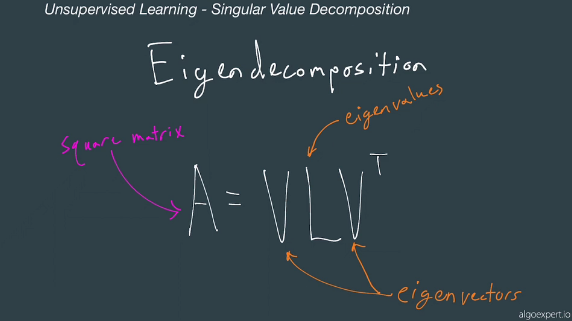 Unsupervised Learning - Singular Value Decomposition
Eigendecomposition
eigenvalues
square matrix
A = VLVᵀ
eigenvectors
algoexpert.io